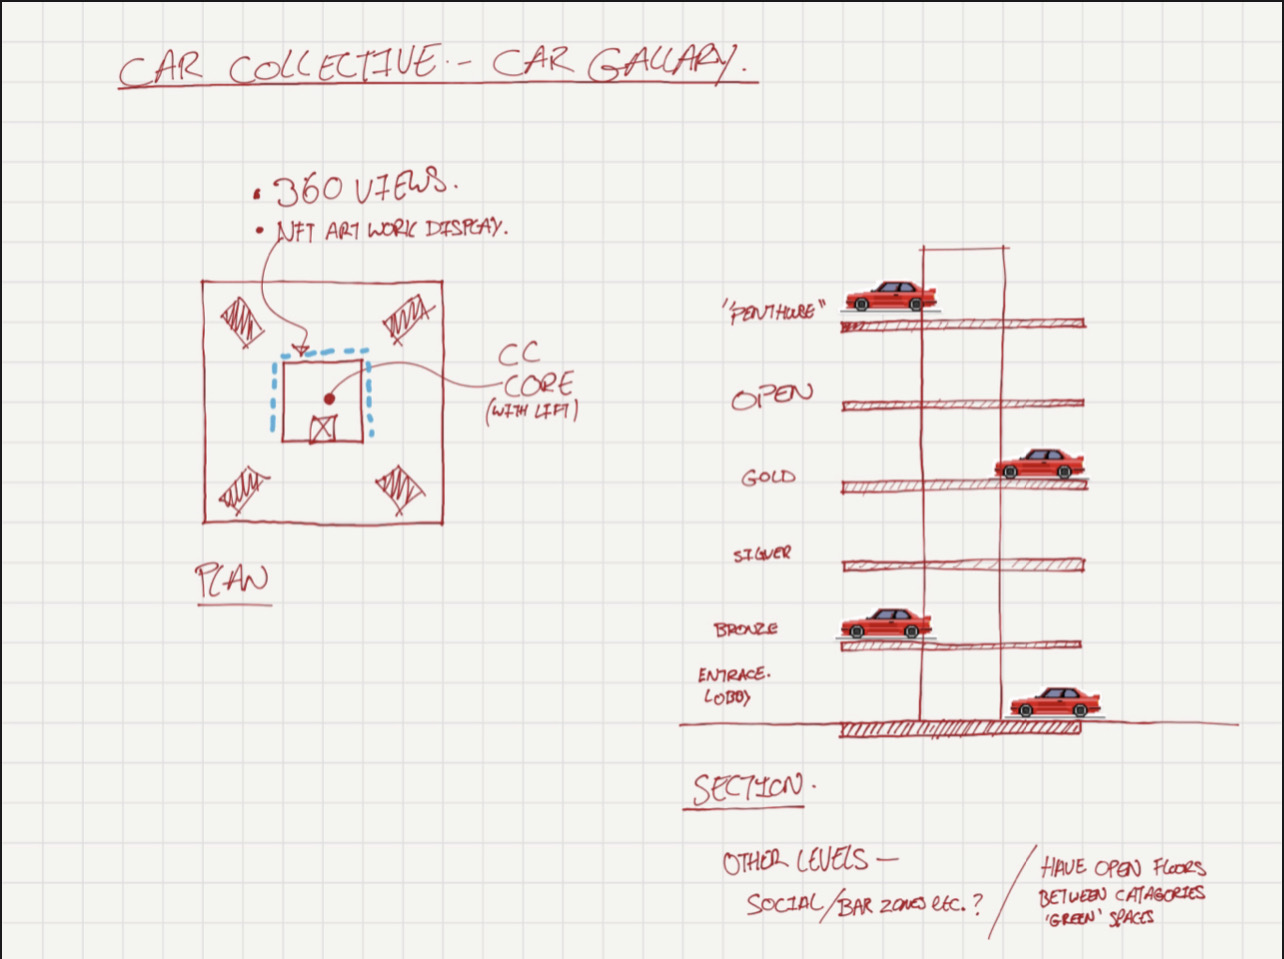 CAR COLLECTIVE - CAR GALLARY.
• 360 VIEWS.
• NFT ART WORK DISPLAY.
CC
CORE
(WITH LIFT)
PLAN
"PENTHOUSE"
OPEN
GOLD
SILVER
BRONZE
ENTRACE.
LOBBY
SECTION.
OTHER LEVELS —
SOCIAL/BAR ZONES etc.?
HAVE OPEN FLOORS
BETWEEN CATAGORIES
'GREEN' SPACES